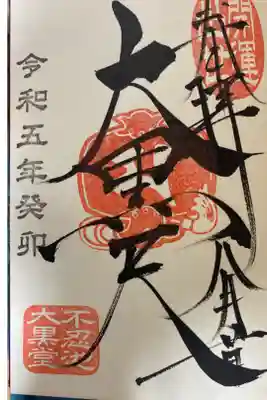 開運
奉拝
八月
大黒天
令和五年癸卯
不忍池
大黒堂